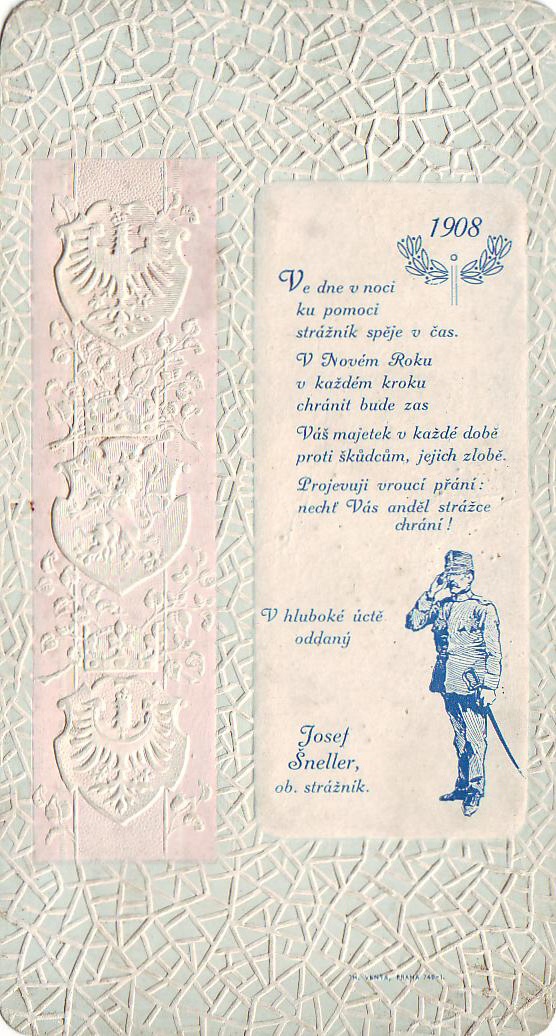 1908
Ve dne v noci
ku pomoci
strážník spěje v čas.
V Novém Roku
v každém kroku
chránit bude zas
Váš majetek v každé době
proti škůdcům, jejich zlobě.
Projevuji vroucí přání:
nechť Vás anděl strážce
chrání!
V hluboké úctě
oddaný
Josef
Šneller,
ob. strážník.
VENTA, PRAHA